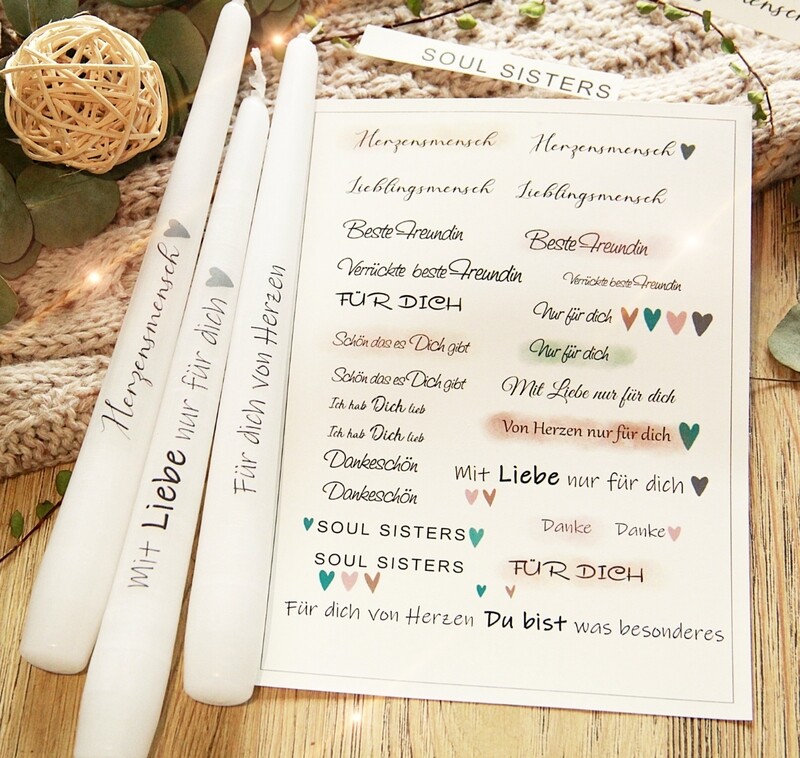 SOUL SISTERS
Herzensmensch
Mit Liebe nur für dich
Für dich von Herzen
Herzensmensch Herzensmensch
Lieblingsmensch Lieblingsmensch
Beste Freundin Beste Freundin
Verrückte beste Freundin Verrückte beste Freundin
FÜR DICH Nur für dich
Schön das es Dich gibt Nur für dich
Schön das es Dich gibt Mit Liebe nur für dich
Ich hab Dich lieb
Ich hab Dich lieb Von Herzen nur für dich
Dankeschön
Dankeschön Mit Liebe nur für dich
SOUL SISTERS Danke Danke
SOUL SISTERS FÜR DICH
Für dich von Herzen Du bist was besonderes